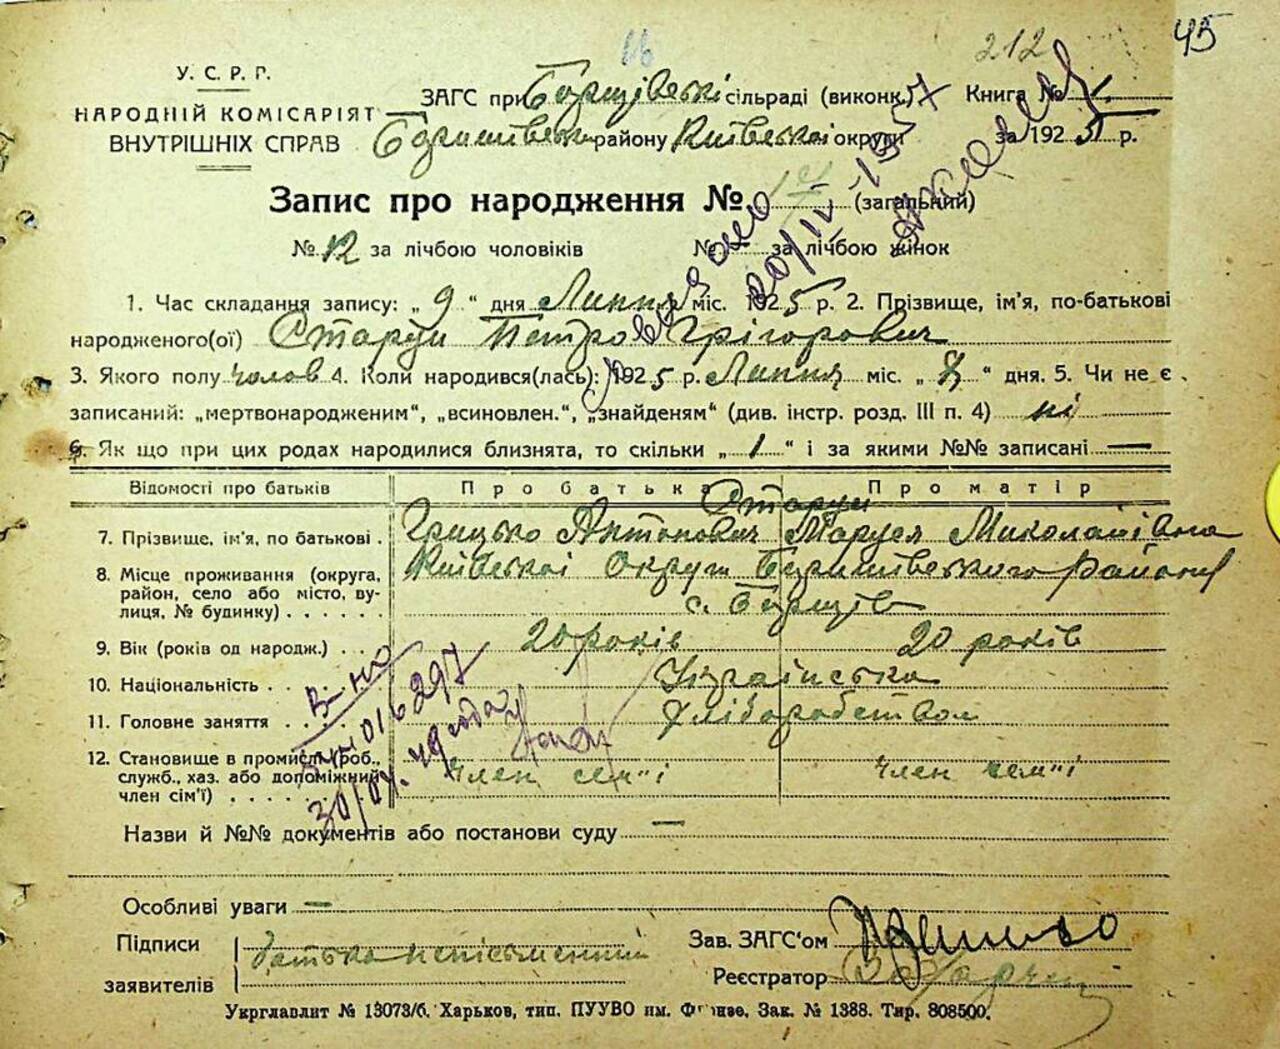 16
212
45
У. С. Р. Р.
НАРОДНІЙ КОМІСАРІЯТ
ВНУТРІШНІХ СПРАВ
ЗАГС при Борщівські сільраді (виконк.) Книга № 1
районy Київської округи за 1925 р.
Запис про народження № (загальний)
№ 12 за лічбою чоловіків № — за лічбою жінок
20/IV 1957
1. Час складання запису: „ 9 " дня Липня міс. 1925 р. 2. Прізвище, ім'я, по-батькові
народженого(ої) Старун Петро Григорович
3. Якого полу чолов 4. Коли народився(лась): 1925 р. Липня міс. „ " дня. 5. Чи не є
записаний: „мертвонародженим", „всиновлен.", „знайденям" (див. інстр. розд. III п. 4) ні
6. Як що при цих родах народилися близнята, то скільки „ 1 " і за якими №№ записані —
Відомості про батьків Про батька Про матір
Старун
7. Прізвище, ім'я, по батькові . Грицько Антонович Маруся Миколаївна
8. Місце проживання (округа, Київської Округи Баришівського Району
район, село або місто, ву-
лиця, № будинку) . . . . . с. Борщів
9. Вік (років од народж.) . . 20 років 20 років
10. Національність . . Українська
11. Головне заняття . . . . Хліборобством
12. Становище в промисл. (роб.,
служб., хаз. або допоміжний член сем'ї член сем'ї
член сім'ї) . . . . .
Назви й №№ документів або постанови суду —
Особливі уваги —
Підписи
заявителів
батько неписьменний
Зав. ЗАГС'ом
Реєстратор
Укрглавлит № 13073/б. Харьков, тип. ПУУВО им. Фрунзе. Зак. № 1388. Тир. 808500.